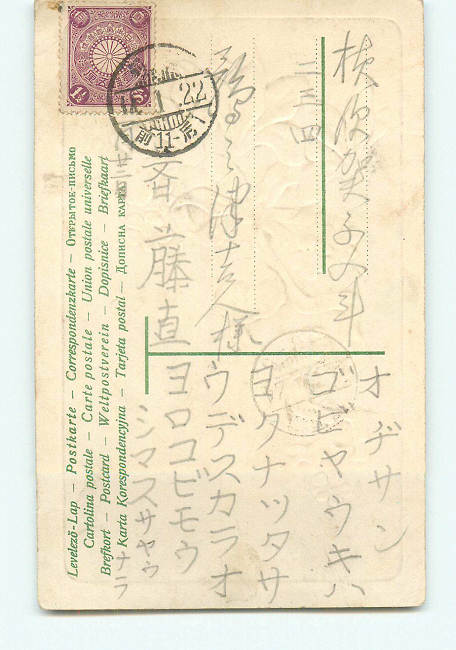 横須賀
二三四
様
斎藤直
オヂサン
ゴビヤウキハ
ヨクナツタサ
ウデスカラオ
ヨロコビモウ
シマスサヤウ
ナラ
22
前11-
Levelező-Lap – Postkarte – Correspondenzkarte – ОТКРЫТОЕ-ПИСЬМО
Cartolina postale – Carte postale – Union postale universelle
Brefkort – Postcard – Weltpostverein – Dopisnice – Briefkaart
Karta Korespondencyjna – Tarjeta postal – ДОПИСНА КАРТА